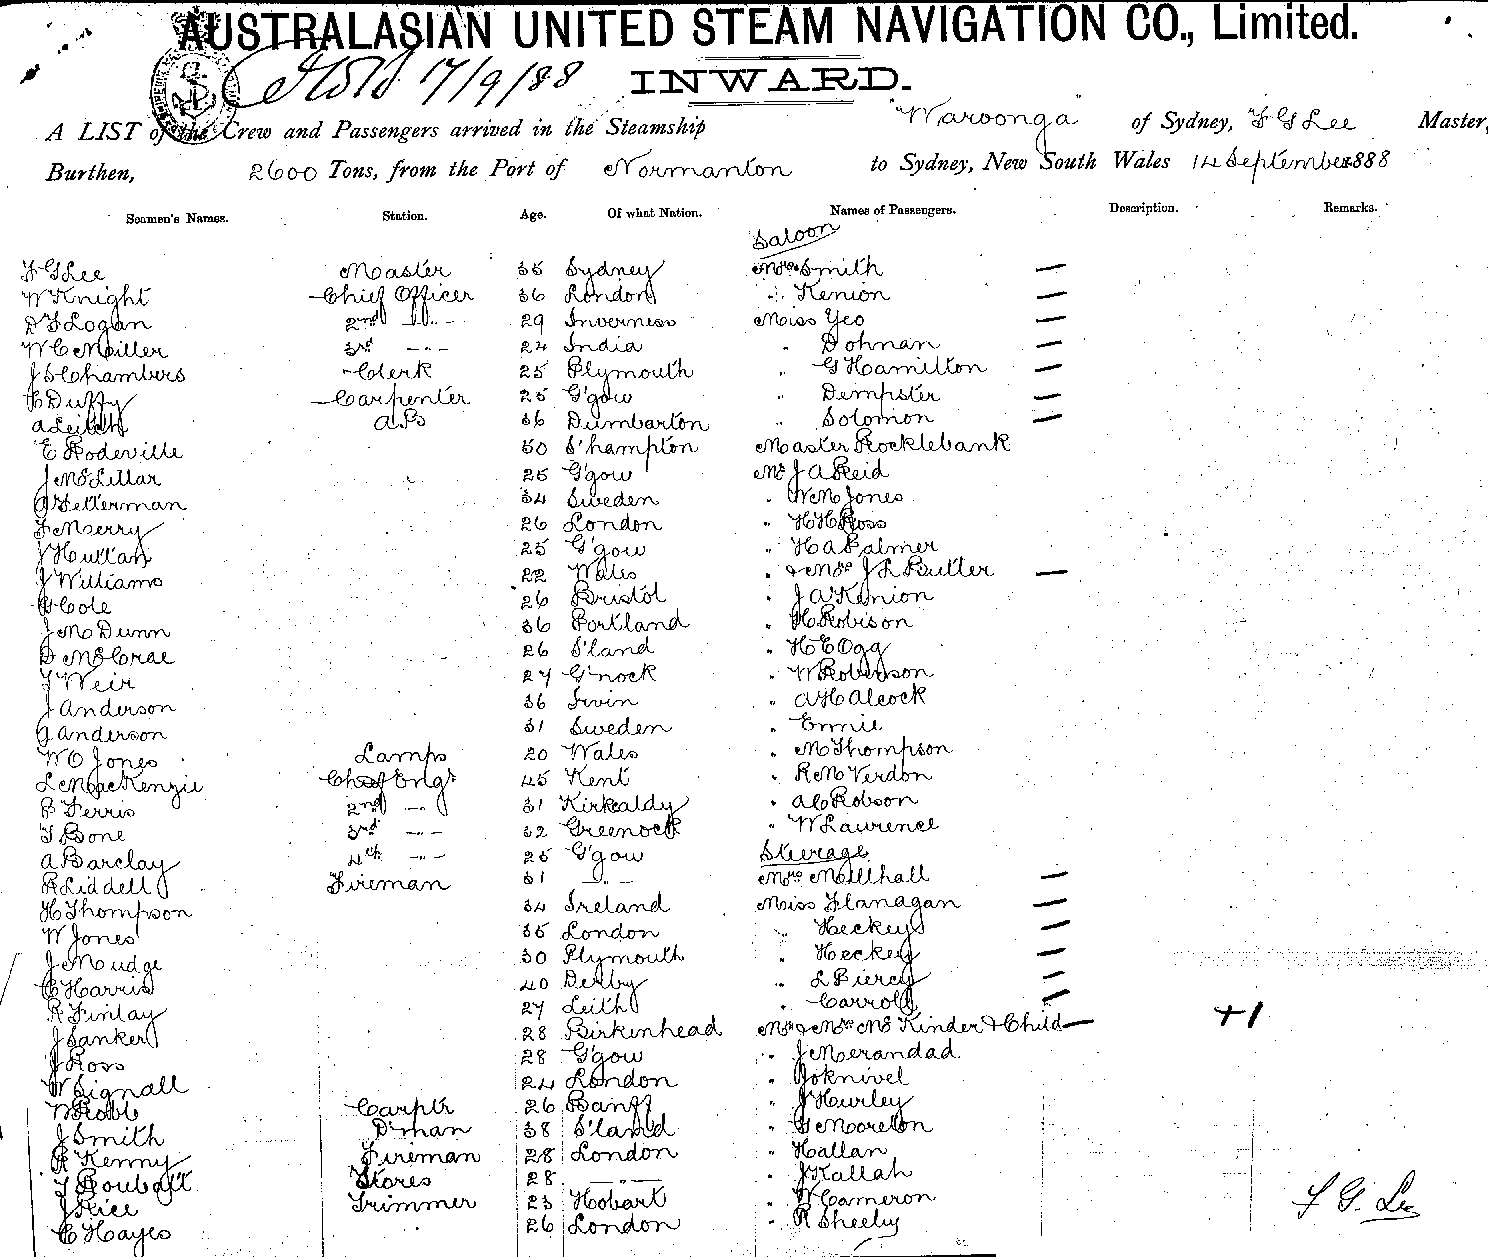 AUSTRALASIAN UNITED STEAM NAVIGATION CO., Limited.
7/9/88 INWARD.
A LIST of the Crew and Passengers arrived in the Steamship "Waroonga" of Sydney, F G Lee Master,
Burthen, 2600 Tons, from the Port of Normanton to Sydney, New South Wales 14 September 1888
Seamen's Names. Station. Age. Of what Nation. Names of Passengers. Description. Remarks.
Saloon
F G Lee Master 35 Sydney Mrs Smith —
W Knight Chief Officer 36 London " Kenion —
D F Logan 2nd -"- 29 Inverness Miss Yeo —
W C Miller 3rd -"- 24 India " Dohnan —
J S Chambers Clerk 25 Plymouth " G Hamilton —
Duffy Carpenter 25 G'gow " Dempster —
A Leitch A B 36 Dumbarton " Solomon —
E Roderville 50 S'hampton Master Rocklebank
J McLillar 25 G'gow Mr J A Reid
Fetterman 34 Sweden " W M Jones
F Merry 26 London " H H Ross
J Hullah 25 G'gow " H A Palmer
J Williams 22 Wales " & Mrs J L Butler —
Cole 26 Bristol " J A Kenion
J M Dunn 36 Portland " H Robison
D McCrae 26 S'land " H E Ogg
Weir 27 G'nock " W Robinson
J Anderson 36 Irvin " A H Alcock
G Anderson 31 Sweden " Ernnie
W O Jones Lamps 20 Wales " M Thompson
L MacKenzie Chief Engr 45 Kent " R M Verdon
P Ferris 2nd -"- 31 Kirkcaldy " A C Robson
T Bone 3rd -"- 32 Greenock " W Lawrence
A Barclay 4th -"- 25 G'gow Steerage
R Liddell Fireman 31 -"- Mrs Millhall —
H Thompson 34 Ireland Miss Flanagan —
W Jones 35 London " Heckeys —
J Mudge 30 Plymouth " Heckey —
C Harris 40 Derby " L Piercy —
R Finlay 27 Leith " Carroll —
J Sanker 28 Birkenhead Mr & Mrs McKinder & Child — +1
J Ross 28 G'gow " J Merandad
W Signall 24 London " Knivel
W Robb Carptr 26 Banff " J Hurley
J Smith D'man 38 S'land " G Moreton
R Kenny Fireman 28 London " Hallan
Stores 28 -"- " J Kallah
J Rice Trimmer 23 Hobart " W Cameron F G Lee
C Hayes 26 London " R Sheehy